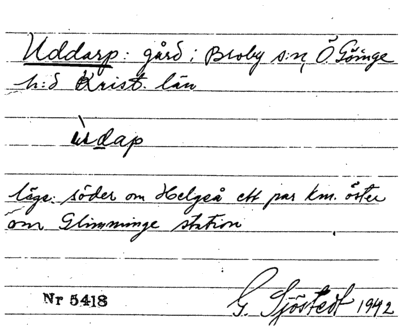 Uddarp: gård i Broby s:n, Ö Göinge
h:d Krist. län
ùdap
läge: söder om Helgeå ett par km. öster
om Glimminge station
Nr 5418 G. Sjöstedt 1942